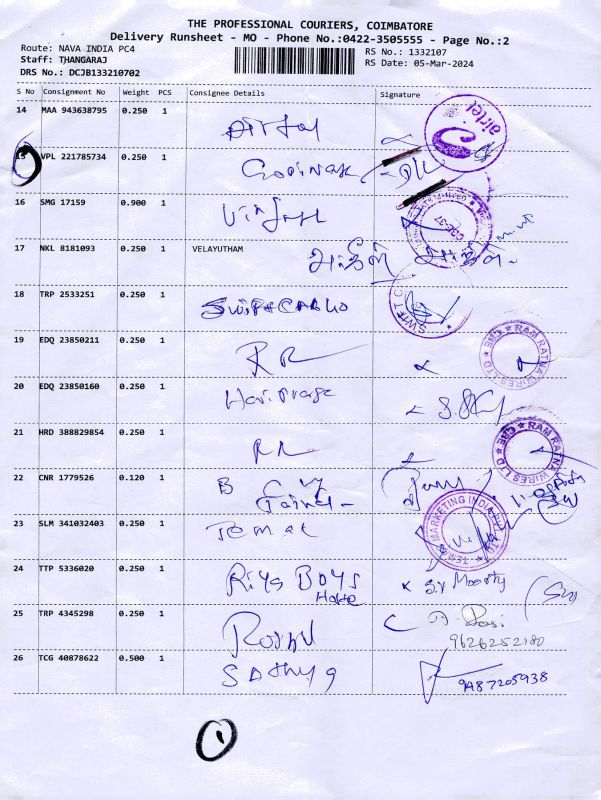 THE PROFESSIONAL COURIERS, COIMBATORE
Delivery Runsheet - MO - Phone No.:0422-3505555 - Page No.:2
Route: NAVA INDIA PC4
RS No.: 1332107
Staff: THANGARAJ
RS Date: 05-Mar-2024
DRS No.: DCJB133210702
S No Consignment No Weight PCS Consignee Details Signature
14 MAA 943638795 0.250 1 Airtel
airtel
15 VPL 221785734 0.250 1
16 SMG 17159 0.900 1
17 NKL 8181093 0.250 1 VELAYUTHAM
18 TRP 2533251 0.250 1 Swift Cargo
SWIFT C
19 EDQ 23850211 0.250 1 RR
RAM RATNA WIRES LTD ★ CBE ★
20 EDQ 23850160 0.250 1
21 HRD 388829854 0.250 1 RR
RAM RATNA WIRES LTD ★ CBE ★
22 CNR 1779526 0.120 1 B
23 SLM 341032403 0.250 1
MARKETING INDIA
24 TTP 5336020 0.250 1 Riya Boys S.V Moorthy
25 TRP 4345298 0.250 1
9626252180
26 TCG 40878622 0.500 1 Sathya
9487205938